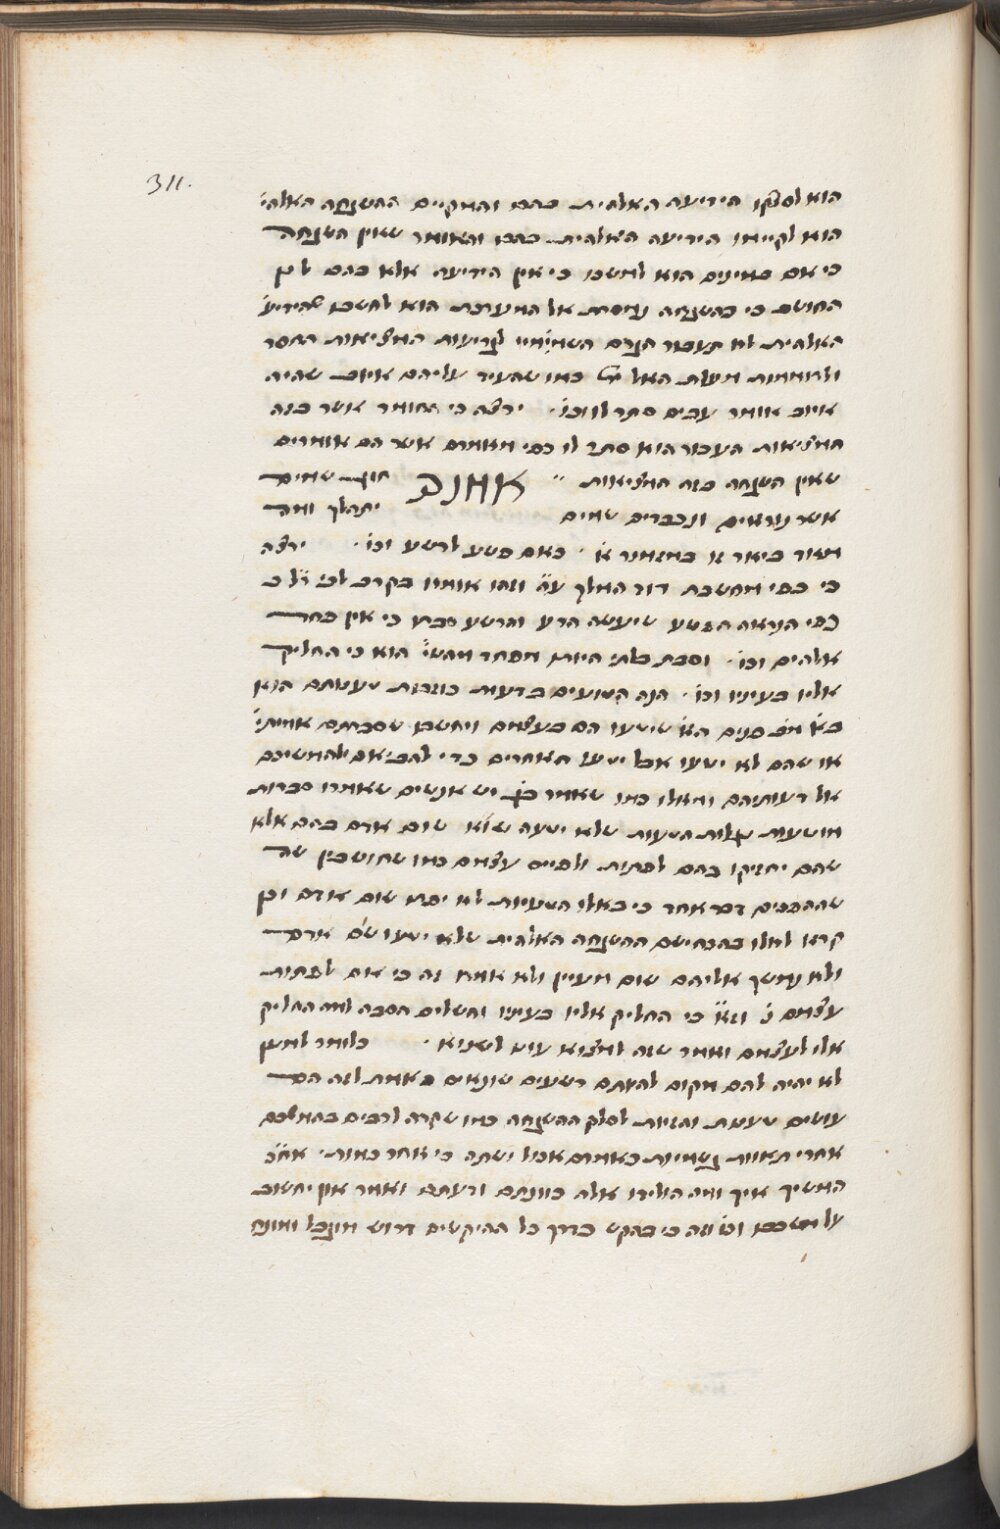 311.
הוא לספקו הידיעה האלהית בהם והמקיים ההשגחה האלהי׳
הוא לקיימו הידיעה האלהית בהם והאומר שאין השגחה
כי אם במינים הוא לחשבו כי אין הידיעה אלא בהם לכן
החושב כי ההשגחה נמסרת אל המערכת הוא לחשבו שהידיע׳
האלהית לא תעבור הגרם השמימיי לגריעות המציאות החסר
ולרוממות מעלת האל ית׳ כמו שהעיד עליהם איוב שהיה
איוב אומר עבים סתר לו וכו׳. ירצה כי החומר אשר בזה
המציאות העכור הוא סתר לו כפי מאמרם אשר הם אומרים
שאין השגחה בזה המציאות״ אמנם חוג שמים
אשר נוראים ונכבדים שמים יתהלך ומה
מאוד ביאר זו במזמור א׳. נאם פשע לרשע וכו׳. ירצה
כי כפי מחשבת דוד המלך ע״ה וזהו אומרו בקרב לבי ר״ל כ
כפי הנראה הפשע שיעשה הרע והרשע מכריע כי אין פחד
אלהים וכו׳. וסבת בלתי היות מפחד מהש״י הוא כי החליק
אליו בעיניו וכו׳. הנה הטועים בדעות כוונת טעותם הוא
בא׳ מב׳ פנים הא׳ שיטעו הם בעצמם ויחשבו שסברתם אמיתי׳
או שהם לא יטעו אבל יטעו האחרים כדי להביאם ולהמשיכם
אל דעותיהם ואמרו כמו שאמר יש אנשים שאמרו סברות
מוטעות גלות הטעות שלא יטעה שום אדם בהם אלא
שהם יחזיקו בהם לפתות ולפייס עצמם כמו שחושבין שה
שההפכים דבר אחד כי באלו הטעיות לא יפת׳ שום אדם וכן
קראו לאלו בהכחישם ההשגחה האלהית שלא יטעו שו׳ אדם
ולא נמשך אליהם שום מעיין ולא אמרו זה כי אם לפתות
עצמם וז״א כי החליק אליו בעיניו והשלים הסבה למה החליק
אלו לעצמם ואמר שזה למצוא עונו לשנוא. כלומר למען
לא יהיה להם מקום להיותם רשעים שונאים באמת לזה הם
עושים טעות והזיות לסלק ההשגחה כמו שקרה לרבים בהמשכם
אחרי תאוות גשמיות כאמרם אכול ושתה כי מחר נמות. אח״כ
המשיך איך ומה הולידו אלה כוונתם ודעתם ואמר און יחשוב
על משכבו וכו׳ וזה כי בהקש בדרך כל ההיקשים דרוש מוגבל ומונח